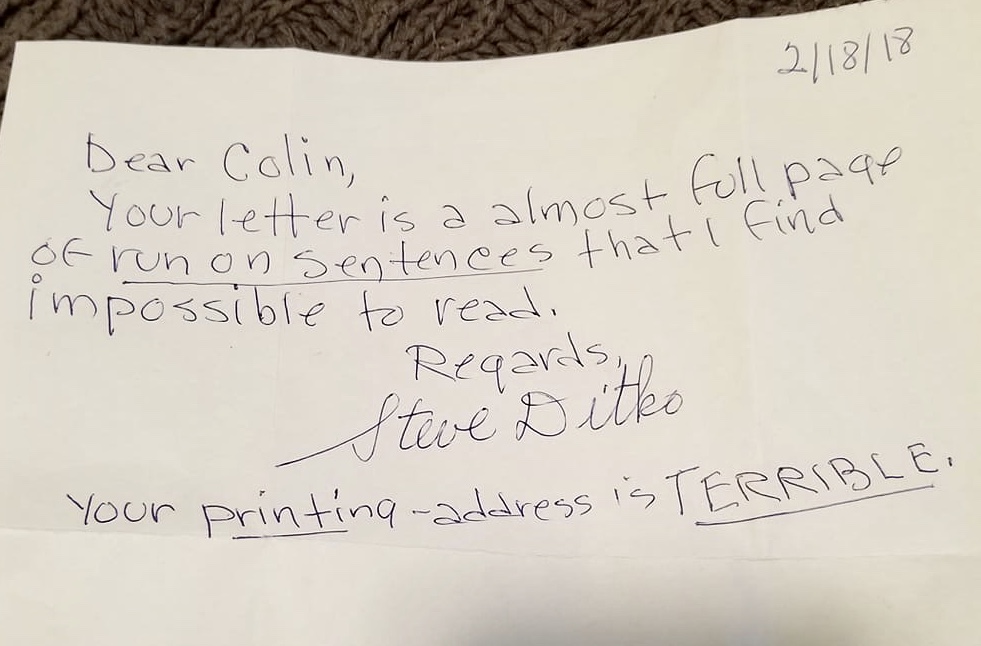 2/18/18
Dear Colin,
Your letter is a almost full page
of run on sentences that I find
impossible to read.
Regards,
Steve Ditko
Your printing-address is TERRIBLE.